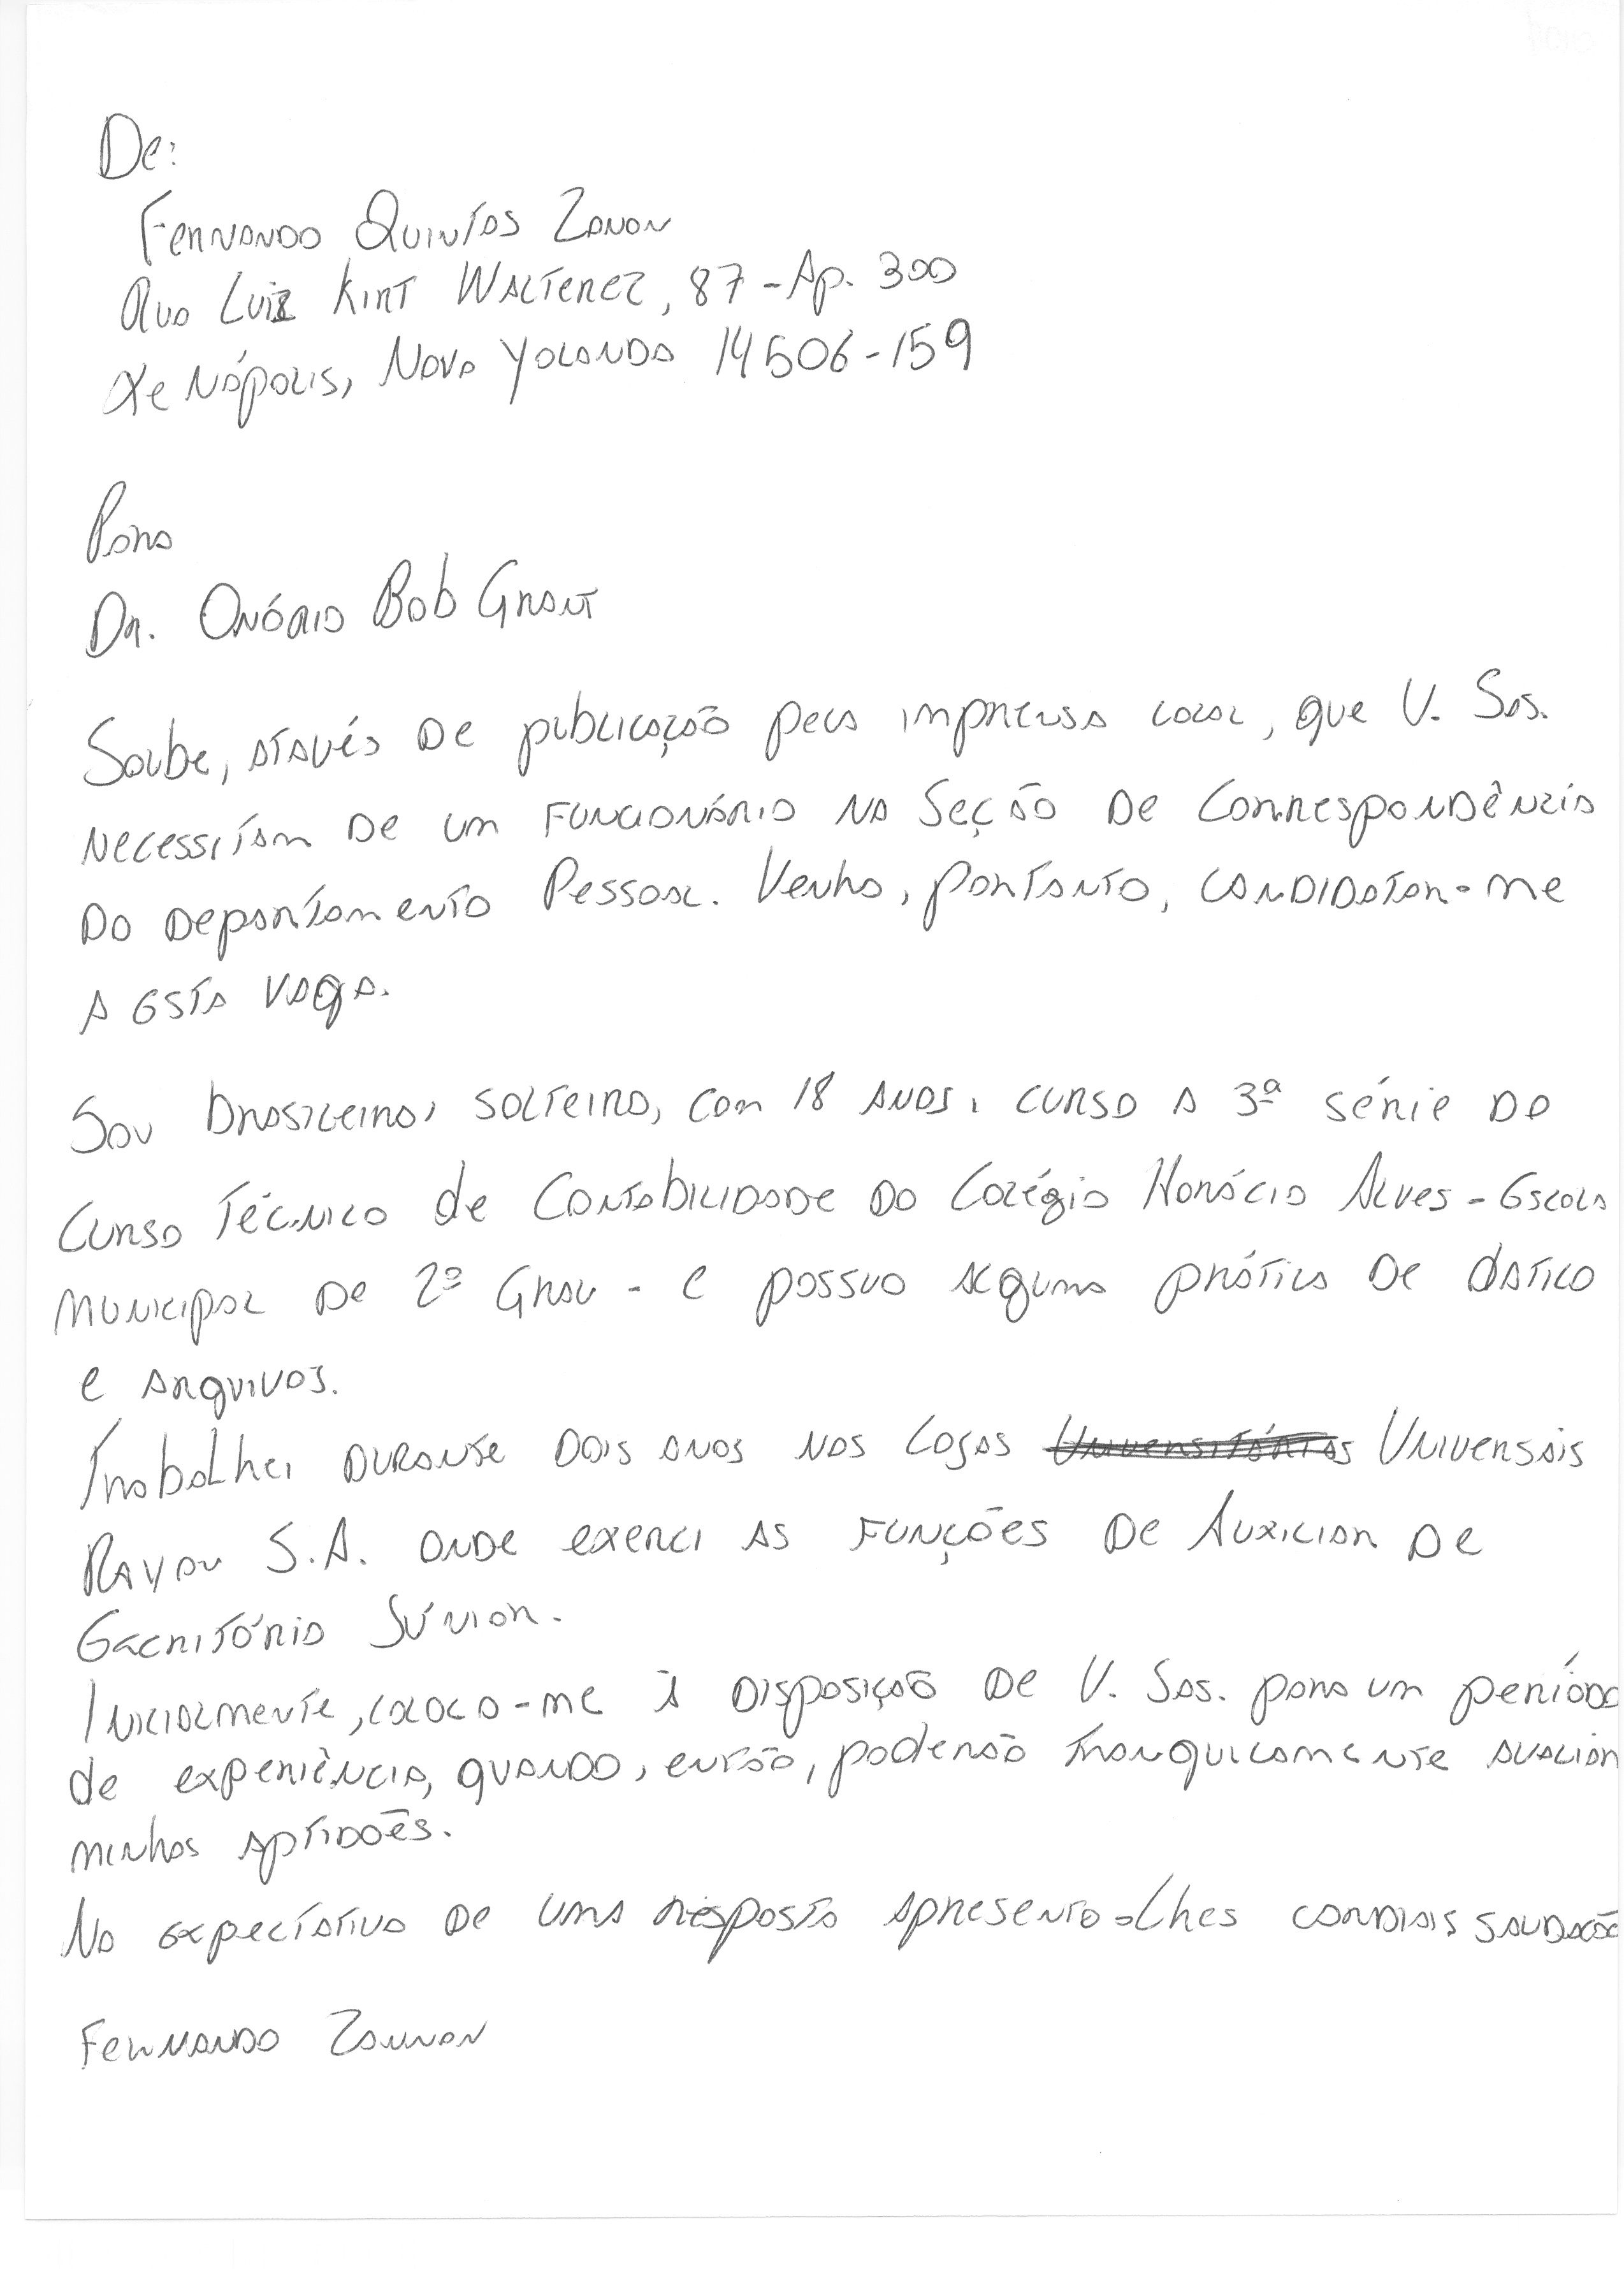 De:
Fernando Quintas Zanon
Rua Luiz Kint Walterez, 87 - Ap. 300
Xenápolis, Nova Yolanda 14506-159
Para
Dr. Onório Bob Grant
Soube, através de publicação pela imprensa local, que V. Sas.
necessitam de um funcionário na Seção de Correspondência
do departamento Pessoal. Venho, portanto, candidatar-me
a esta vaga.
Sou brasileiro, solteiro, com 18 anos, curso a 3ª série do
Curso Técnico de Contabilidade do Colégio Horácio Alves - Escola
Municipal de 2º Grau - e possuo alguma prática de datilo
e arquivos.
Trabalhei durante dois anos nas Lojas Universitárias Universais
Rayan S.A. onde exerci as funções de Auxiliar de
Escritório Júnior.
Inicialmente, coloco-me à disposição de V. Sas. para um período
de experiência, quando, então, poderão tranquilamente avaliar
minhas aptidões.
Na expectativa de uma resposta apresento-lhes cordiais
Fernando Zannon